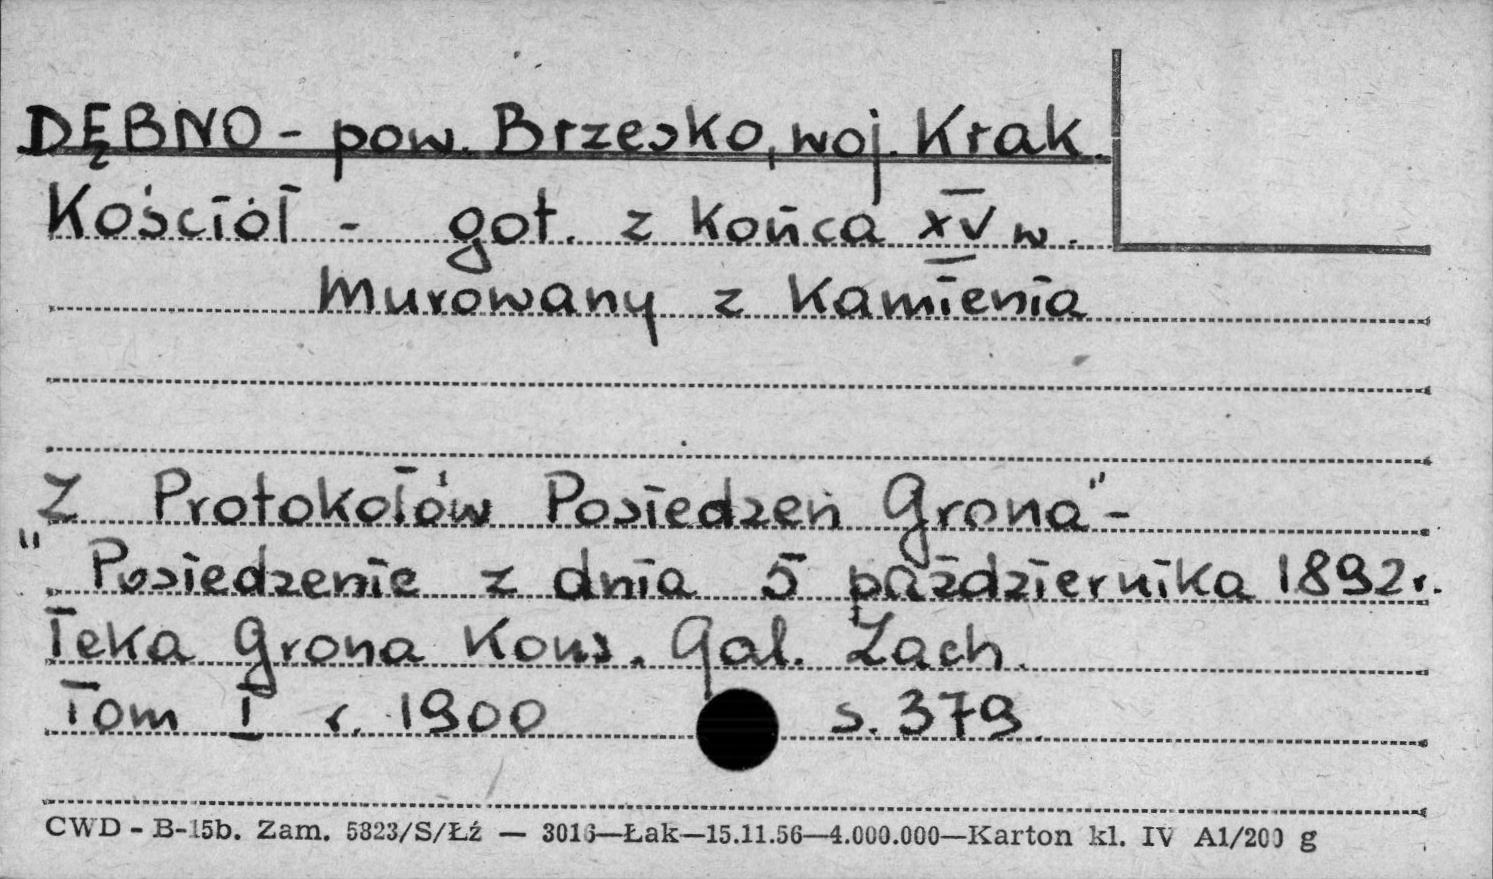 DĘBNO - pow. Brzesko, woj. Krak.
Kościół - got. z końca XV w.
Murowany z kamienia
Z Protokołów Posiedzeń Grona" -
"Posiedzenie z dnia 5 października 1892 r.
Teka Grona Kons. Gal. Zach.
Tom I r. 1900 s. 379
CWD - B-15b. Zam. 5823/S/Łź — 3016—Łak—15.11.56—4.000.000—Karton kl. IV A1/200 g